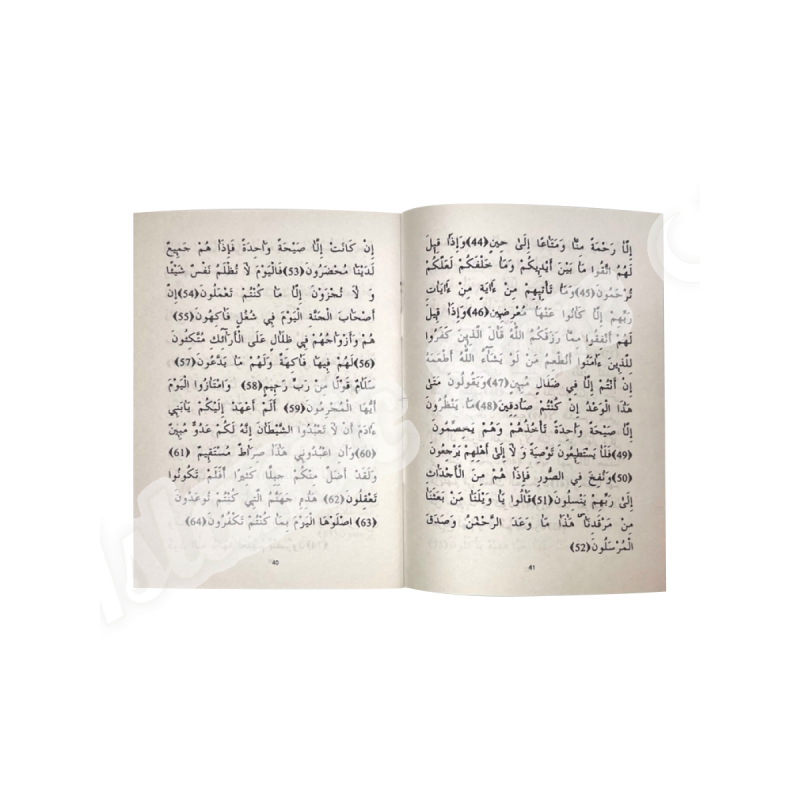 إِلَّا رَحْمَةً مِنَّا وَمَتَاعًا إِلَىٰ حِينٍ(44)وَإِذَا قِيلَ
لَهُمُ اتَّقُوا مَا بَيْنَ أَيْدِيكُمْ وَمَا خَلْفَكُمْ لَعَلَّكُمْ
تُرْحَمُونَ(45)وَمَا تَأْتِيهِمْ مِنْ ءَايَةٍ مِنْ ءَايَاتِ
رَبِّهِمْ إِلَّا كَانُوا عَنْهَا مُعْرِضِينَ(46)وَإِذَا قِيلَ
لَهُمْ أَنْفِقُوا مِمَّا رَزَقَكُمُ اللَّهُ قَالَ الَّذِينَ كَفَرُوا
لِلَّذِينَ ءَامَنُوا أَنُطْعِمُ مَنْ لَوْ يَشَاءُ اللَّهُ أَطْعَمَهُ
إِنْ أَنْتُمْ إِلَّا فِي ضَلَالٍ مُبِينٍ(47)وَيَقُولُونَ مَتَىٰ
هَٰذَا الْوَعْدُ إِنْ كُنْتُمْ صَادِقِينَ(48)مَا يَنْظُرُونَ
إِلَّا صَيْحَةً وَاحِدَةً تَأْخُذُهُمْ وَهُمْ يَخِصِّمُونَ
(49)فَلَا يَسْتَطِيعُونَ تَوْصِيَةً وَ لَا إِلَىٰ أَهْلِهِمْ يَرْجِعُونَ
(50)وَنُفِخَ فِي الصُّورِ فَإِذَا هُمْ مِنَ الْأَجْدَاثِ
إِلَىٰ رَبِّهِمْ يَنْسِلُونَ(51)قَالُوا يَا وَيْلَنَا مَنْ بَعَثَنَا
مِنْ مَرْقَدِنَا ۜ هَٰذَا مَا وَعَدَ الرَّحْمَٰنُ وَصَدَقَ
الْمُرْسَلُونَ(52)
41
إِنْ كَانَتْ إِلَّا صَيْحَةً وَاحِدَةً فَإِذَا هُمْ جَمِيعٌ
لَدَيْنَا مُحْضَرُونَ(53)فَالْيَوْمَ لَا تُظْلَمُ نَفْسٌ شَيْئًا
وَ لَا تُجْزَوْنَ إِلَّا مَا كُنْتُمْ تَعْمَلُونَ(54)إِنَّ
أَصْحَابَ الْجَنَّةِ الْيَوْمَ فِي شُغُلٍ فَاكِهُونَ(55)
هُمْ وَأَزْوَاجُهُمْ فِي ظِلَالٍ عَلَى الْأَرَائِكِ مُتَّكِئُونَ
(56)لَهُمْ فِيهَا فَاكِهَةٌ وَلَهُمْ مَا يَدَّعُونَ(57)
سَلَامٌ قَوْلًا مِنْ رَبٍّ رَحِيمٍ(58) وَامْتَازُوا الْيَوْمَ
أَيُّهَا الْمُجْرِمُونَ(59) أَلَمْ أَعْهَدْ إِلَيْكُمْ يَابَنِي
ءَادَمَ أَنْ لَا تَعْبُدُوا الشَّيْطَانَ إِنَّهُ لَكُمْ عَدُوٌّ مُبِينٌ
(60)وَأَنِ اعْبُدُونِي هَٰذَا صِرَاطٌ مُسْتَقِيمٌ (61)
وَلَقَدْ أَضَلَّ مِنْكُمْ جِبِلًّا كَثِيرًا أَفَلَمْ تَكُونُوا
تَعْقِلُونَ(62) هَٰذِهِ جَهَنَّمُ الَّتِي كُنْتُمْ تُوعَدُونَ
(63) اصْلَوْهَا الْيَوْمَ بِمَا كُنْتُمْ تَكْفُرُونَ(64)
40